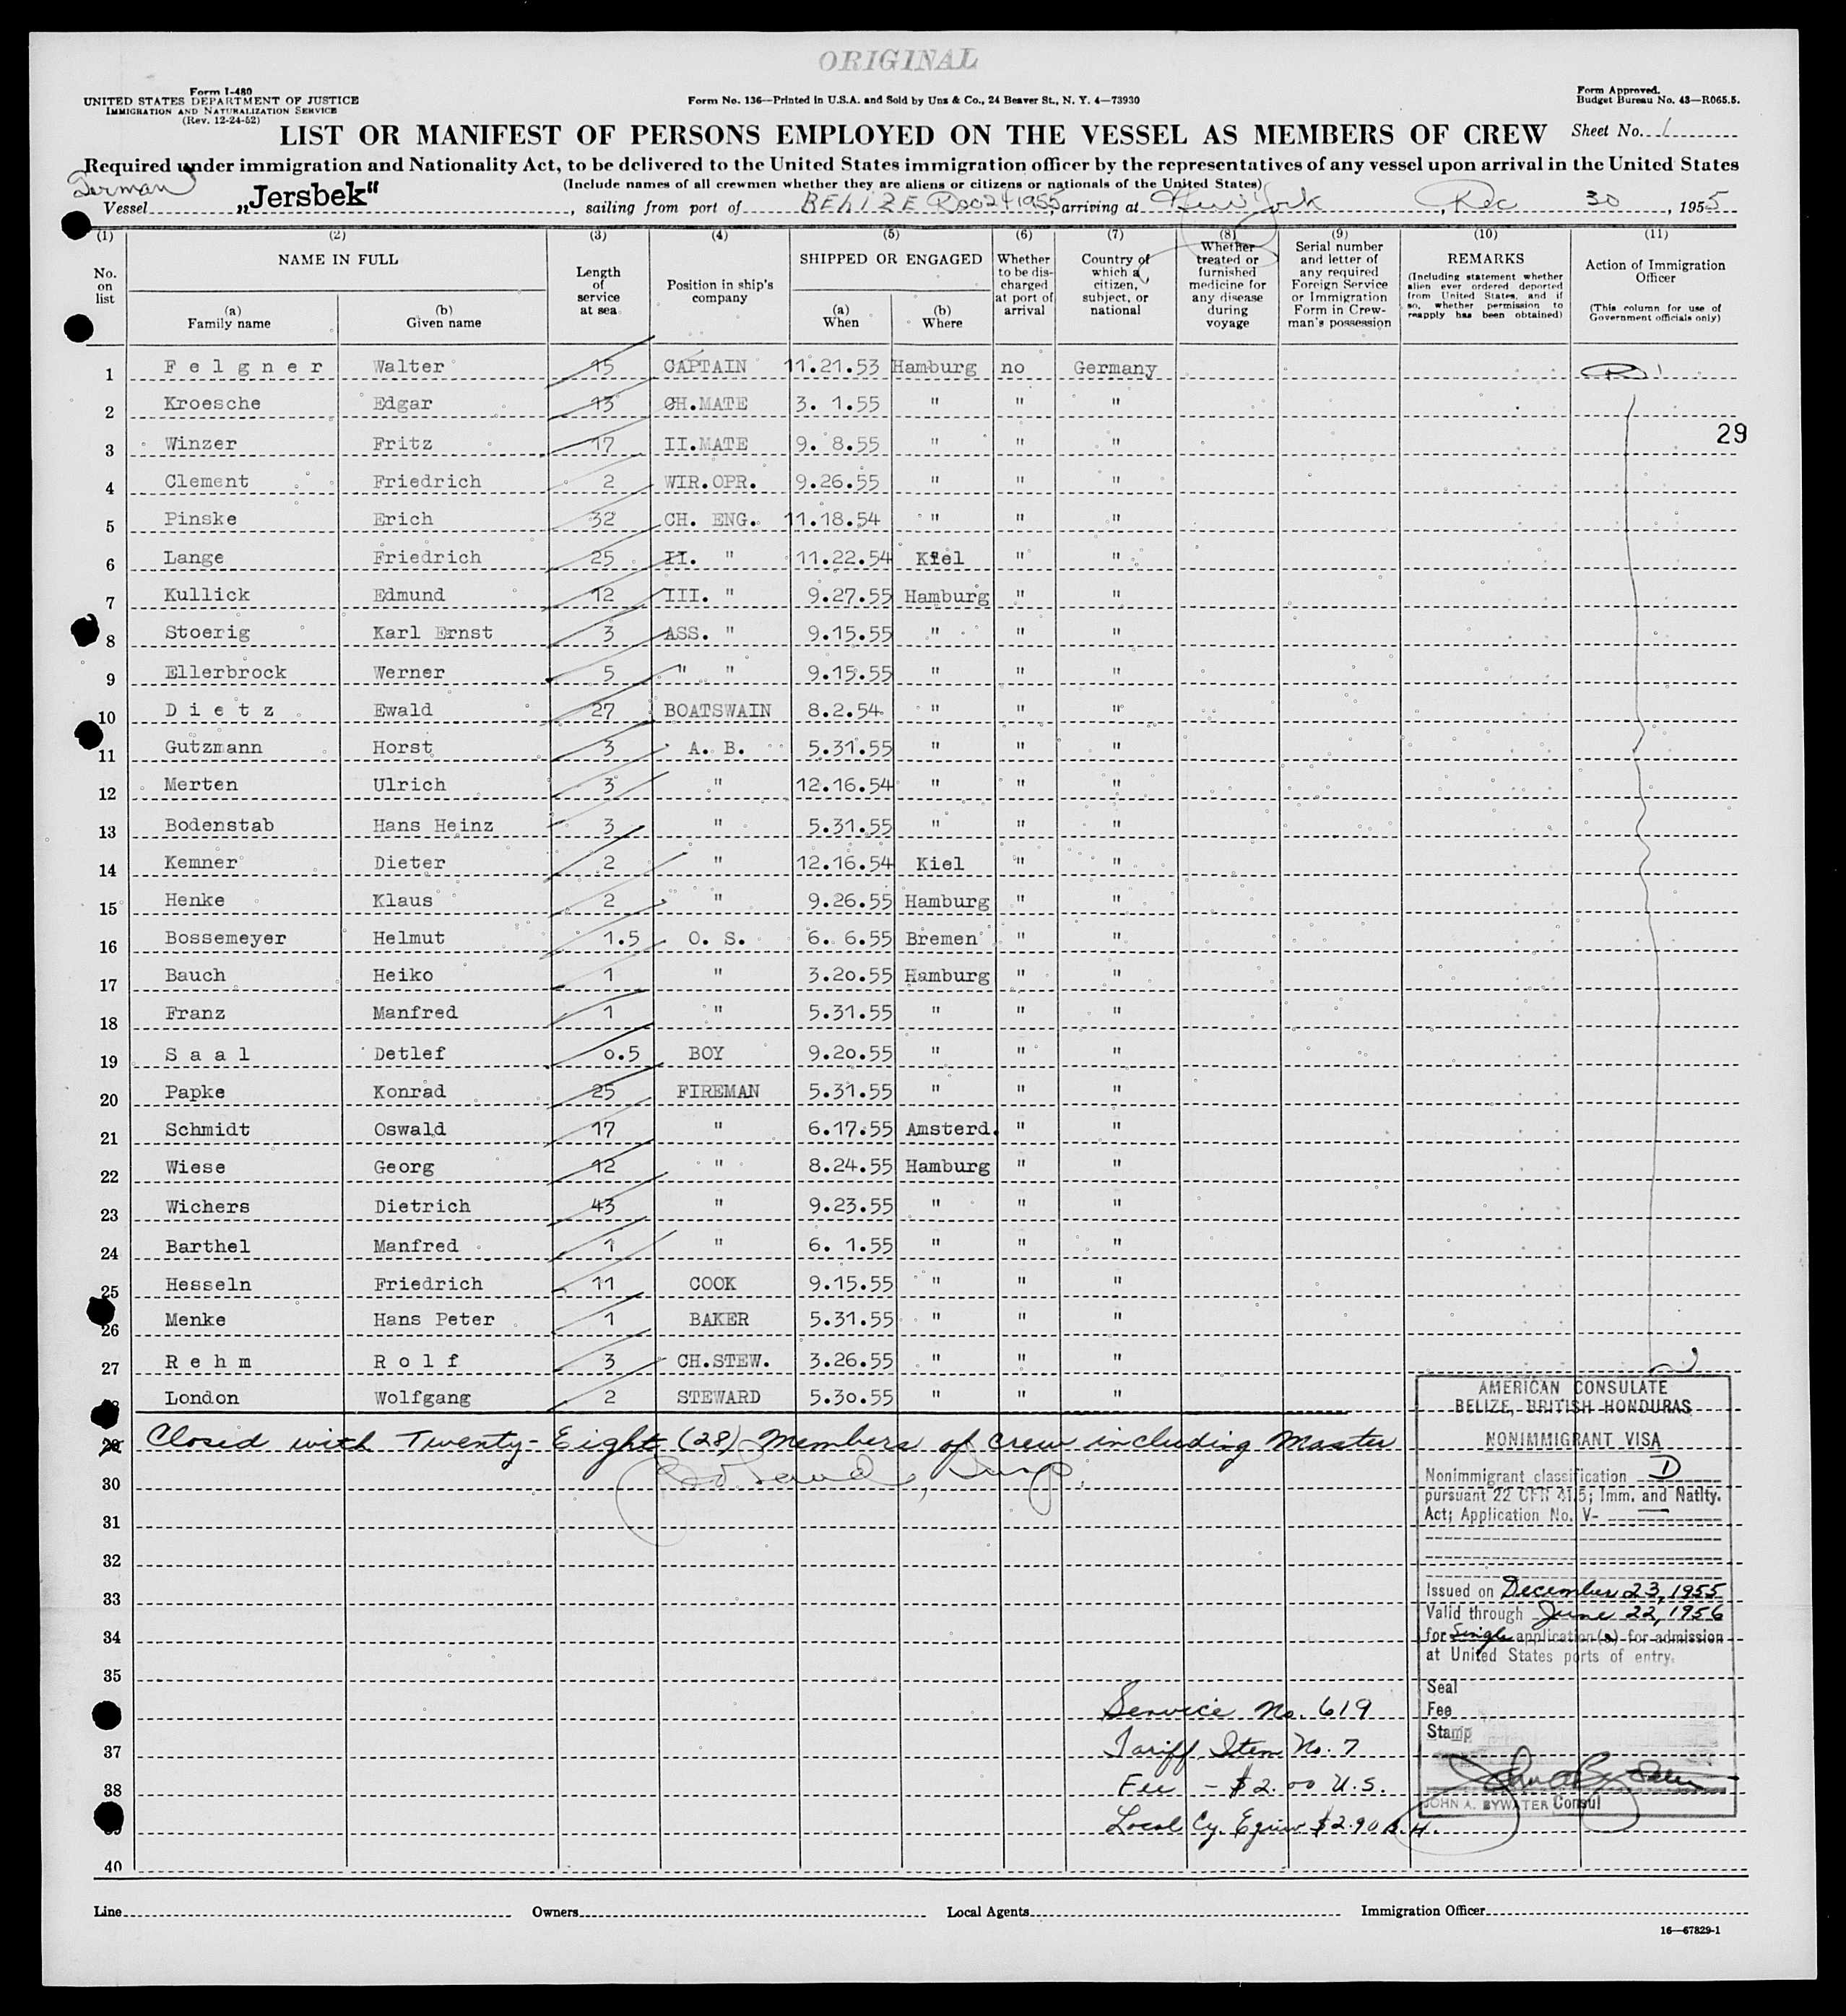 ORIGINAL
Form I-480
UNITED STATES DEPARTMENT OF JUSTICE
IMMIGRATION AND NATURALIZATION SERVICE
(Rev. 12-24-52)
Form No. 136—Printed in U.S.A. and Sold by Unz & Co., 24 Beaver St., N. Y. 4—73930
Form Approved.
Budget Bureau No. 43—R065.5.
LIST OR MANIFEST OF PERSONS EMPLOYED ON THE VESSEL AS MEMBERS OF CREW Sheet No. 1
Required under immigration and Nationality Act, to be delivered to the United States immigration officer by the representatives of any vessel upon arrival in the United States
(Include names of all crewmen whether they are aliens or citizens or nationals of the United States)
German
Vessel „Jersbek“, sailing from port of BELIZE Dec 24 1955, arriving at New York, Dec 30, 1955
(1) (2) (3) (4) (5) (6) (7) (8) (9) (10) (11)
No. on list
NAME IN FULL
(a) Family name
(b) Given name
Length of service at sea
Position in ship's company
SHIPPED OR ENGAGED
(a) When
(b) Where
Whether to be discharged at port of arrival
Country of which a citizen, subject, or national
Whether treated or furnished medicine for any disease during voyage
Serial number and letter of any required Foreign Service or Immigration Form in Crewman's possession
REMARKS
(Including statement whether alien ever ordered deported from United States, and if so, whether permission to reapply has been obtained)
Action of Immigration Officer
(This column for use of Government officials only)
1 F e l g n e r Walter 15 CAPTAIN 11.21.53 Hamburg no Germany
2 Kroesche Edgar 13 CH.MATE 3. 1.55 " " "
29
3 Winzer Fritz 17 II.MATE 9. 8.55 " " "
4 Clement Friedrich 2 WIR.OPR. 9.26.55 " " "
5 Pinske Erich 32 CH. ENG. 11.18.54 " " "
6 Lange Friedrich 25 II. " 11.22.54 Kiel " "
7 Kullick Edmund 12 III. " 9.27.55 Hamburg " "
8 Stoerig Karl Ernst 3 ASS. " 9.15.55 " " "
9 Ellerbrock Werner 5 " " 9.15.55 " " "
10 D i e t z Ewald 27 BOATSWAIN 8.2.54 " " "
11 Gutzmann Horst 3 A. B. 5.31.55 " " "
12 Merten Ulrich 3 " 12.16.54 " " "
13 Bodenstab Hans Heinz 3 " 5.31.55 " " "
14 Kemner Dieter 2 " 12.16.54 Kiel " "
15 Henke Klaus 2 " 9.26.55 Hamburg " "
16 Bossemeyer Helmut 1.5 O. S. 6. 6.55 Bremen " "
17 Bauch Heiko 1 " 3.20.55 Hamburg " "
18 Franz Manfred 1 " 5.31.55 " " "
19 S a a l Detlef 0.5 BOY 9.20.55 " " "
20 Papke Konrad 25 FIREMAN 5.31.55 " " "
21 Schmidt Oswald 17 " 6.17.55 Amsterd. " "
22 Wiese Georg 12 " 8.24.55 Hamburg " "
23 Wichers Dietrich 43 " 9.23.55 " " "
24 Barthel Manfred 1 " 6. 1.55 " " "
25 Hesseln Friedrich 11 COOK 9.15.55 " " "
26 Menke Hans Peter 1 BAKER 5.31.55 " " "
27 R e h m R o l f 3 CH.STEW. 3.26.55 " " "
London Wolfgang 2 STEWARD 5.30.55 " " "
29 Closed with Twenty-Eight (28) Members of Crew including Master
30
31
32
33
34
35
37
38
40
AMERICAN CONSULATE
BELIZE, BRITISH HONDURAS
NONIMMIGRANT VISA
Nonimmigrant classification D
pursuant 22 CFR 41.5; Imm. and Natlty.
Act; Application No. V-
Issued on December 23, 1955
Valid through June 22, 1956
for Single application(s) for admission
at United States ports of entry.
Seal
Fee
Stamp
JOHN A. BYWATER Consul
Service No. 619
Tariff Item No. 7
Fee - $2.00 U.S.
Local Cy. Equiv $2.90 B.H.
Line Owners Local Agents Immigration Officer
16—67829-1